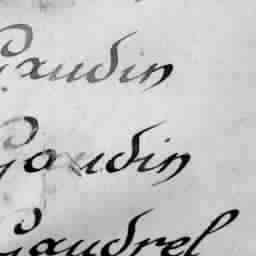 Gaudin
Gaudin
Gaudrel